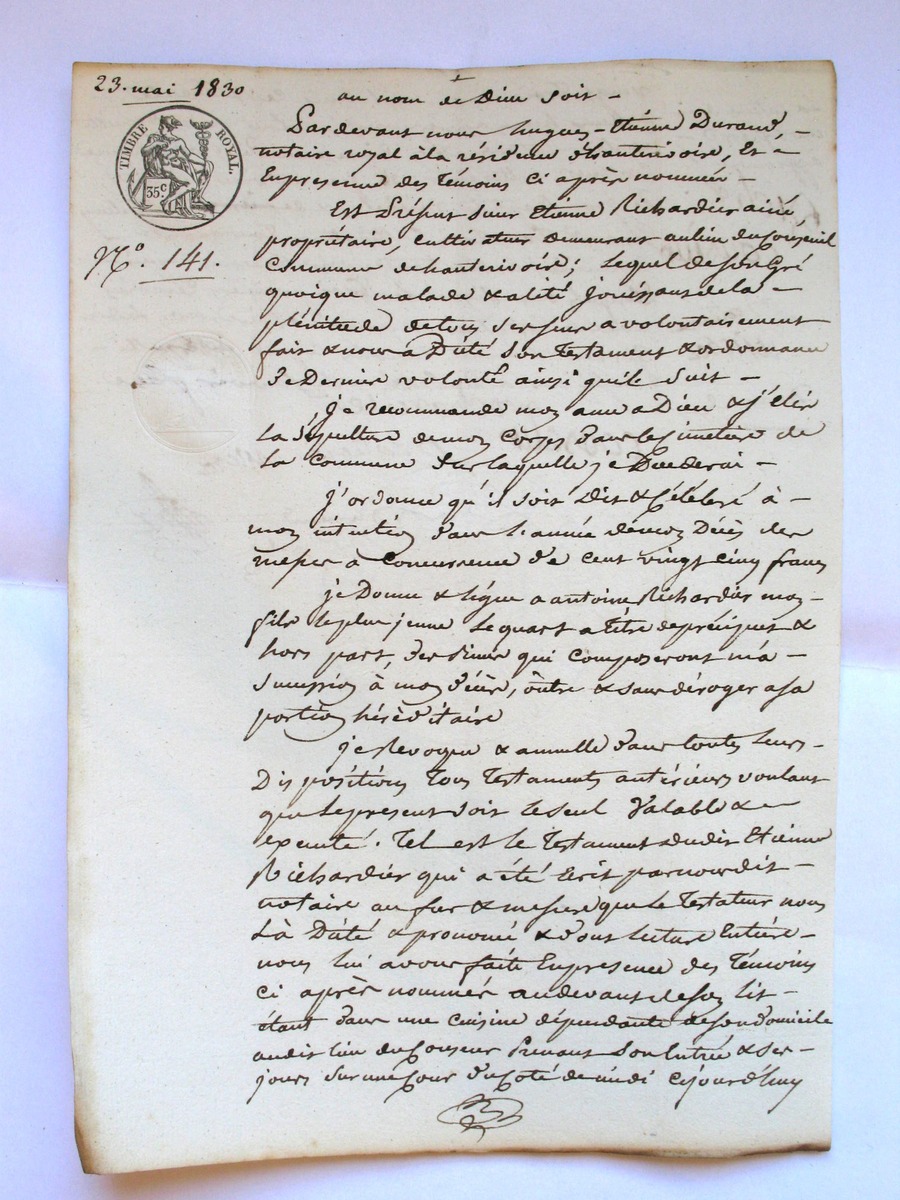 23. mai 1830
au nom de Dieu soit -
TIMBRE ROYAL.
35c
Pardevant nous hugues - Etiénne Durand, -
notaire royal à la résidence d'hauterivoire, Et -
Enpresence des témoins ci après nommés -
Est Présent sieur Etiénne Richardier ainé,
N.o 141.
propriétaire, cultivateur demeurant au lieu du
Commune de hauterivoire; lequel de son Gré
quoique malade & alité jouissant de la -
plénitude de tous ses sens a volontairement
fait & nous a Dicté son testament & ordonnance
de Derniere volonté ainsi qu'ils suit -
je recommande mon ame a Dieu & j'élis
la sépulture de mon corps dans le Cimetière de
la commune sur laquelle je Décèderai -
j'ordonne qu'il soit Dit & Célébré à -
mon intention dans l'année de mon Décès des
messes a concurrence de cent vingt cinq francs
je Donne & légue a antoine Richardier mon -
fils le plus jeune le quart a titre de préciput &
hors part, des biens qui composeront ma -
succession à mon décès, outre & sans déroger a sa
portion héréditaire
je Revoque & annulle dans toutes leurs -
Dispositions tous testaments antérieurs voulant
que le present soit le seul valable & -
exécuté. Tel est le testament dudit Etiénne
Richardier qui a été Ecrit par nousdit -
notaire au fur & mesure que le Testateur nous
l'à Dicté & prononcé & dont lecture Entière -
nous lui avons faite Enpresence des témoins
ci après nommés au devant de son lit -
étant dans une cuisine dépendante de son domicile
audit lieu du Prenant son Entrée & ses -
jours sur une Cour du Coté de midi cejourd'huy